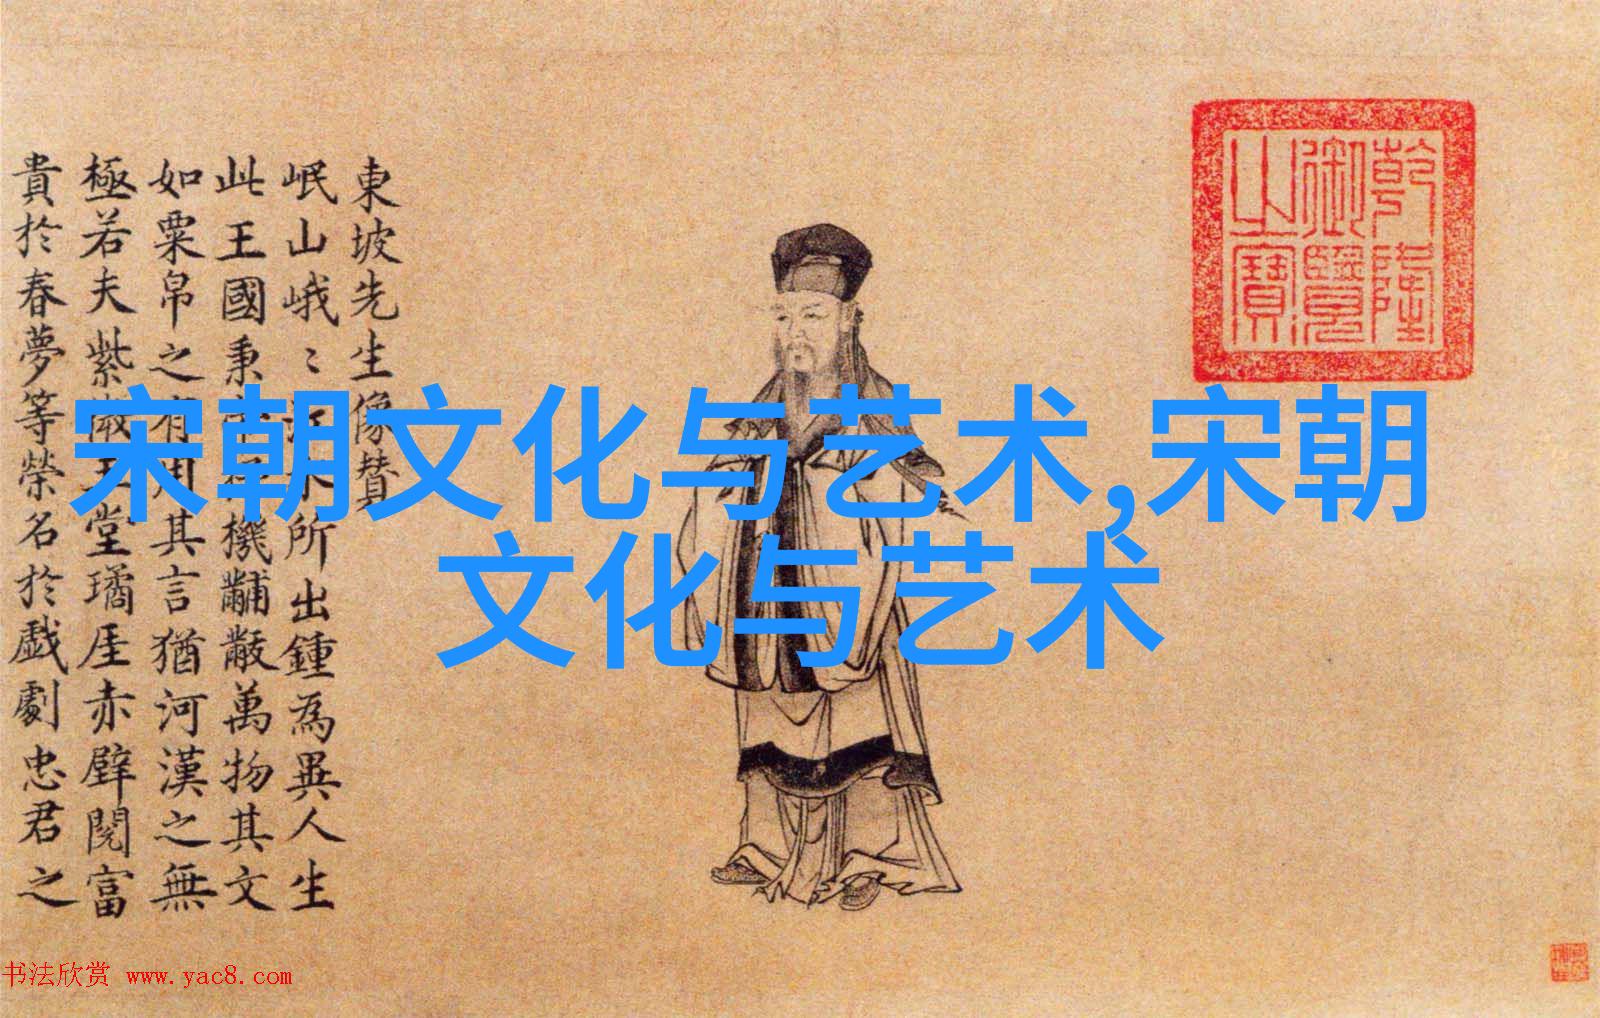 宋朝文化与艺术,宋朝
文化与艺术
東坡先生像贊
岷山峨〻水所出鍾為異人生
此王國秉機黼黻萬物其文
如粟帛之有用其言猶河漢之無
極若夫紫微堂璚厓赤壁閱富
貴於春夢等榮名於戲劇忠君之
乾隆
御覽
之寶
书法欣赏 www.yac8.com